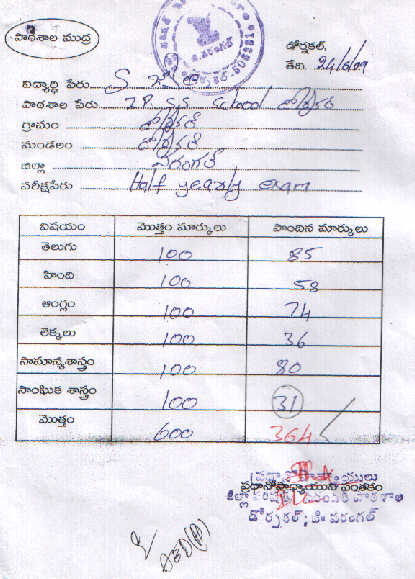 పాఠశాల ముద్ర
డోర్నకల్,
తేది. 24/6/09
విద్యార్థి పేరు S
పాఠశాల పేరు Z.P.S.S School డోర్నకల్
గ్రామం డోర్నకల్
మండలం డోర్నకల్
జిల్లా వరంగల్
పరీక్షపేరు Half yearly exam
విషయం మొత్తం మార్కులు పొందిన మార్కులు
తెలుగు 100 85
హింది 100 58
ఆంగ్లం 100 74
లెక్కలు 100 36
సామాన్యశాస్త్రం 100 80
సాంఘిక శాస్త్రం 100 31
మొత్తం 600 364
ప్రధానోపాధ్యాయుని సంతకం
డోర్నకల్; జి వరంగల్